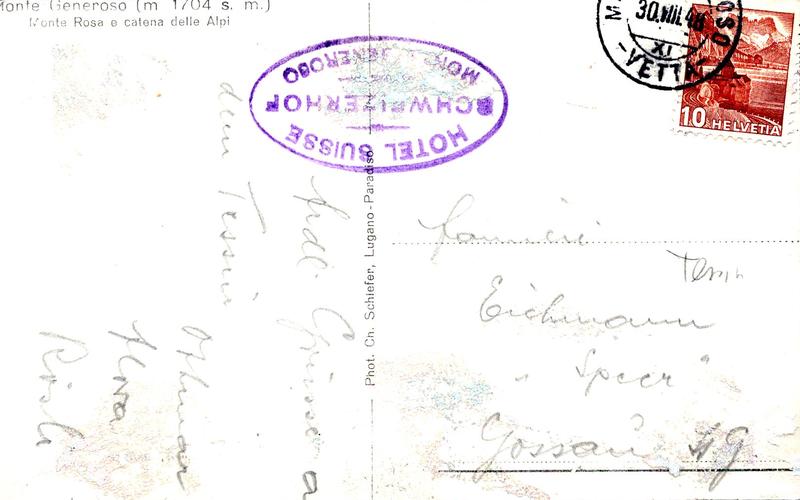 Monte Generoso (m 1704 s. m.)
Monte Rosa e catena delle Alpi
HOTEL SUISSE
SCHWEIZERHOF
MONTE GENEROSO
30.VIII.48
XI
-VETTA-
10 HELVETIA
Phot. Ch. Schiefer, Lugano-Paradiso
Grüsse a
dem Tessin
Flora
Rösli
Eichmann
„Speer"
Gossau